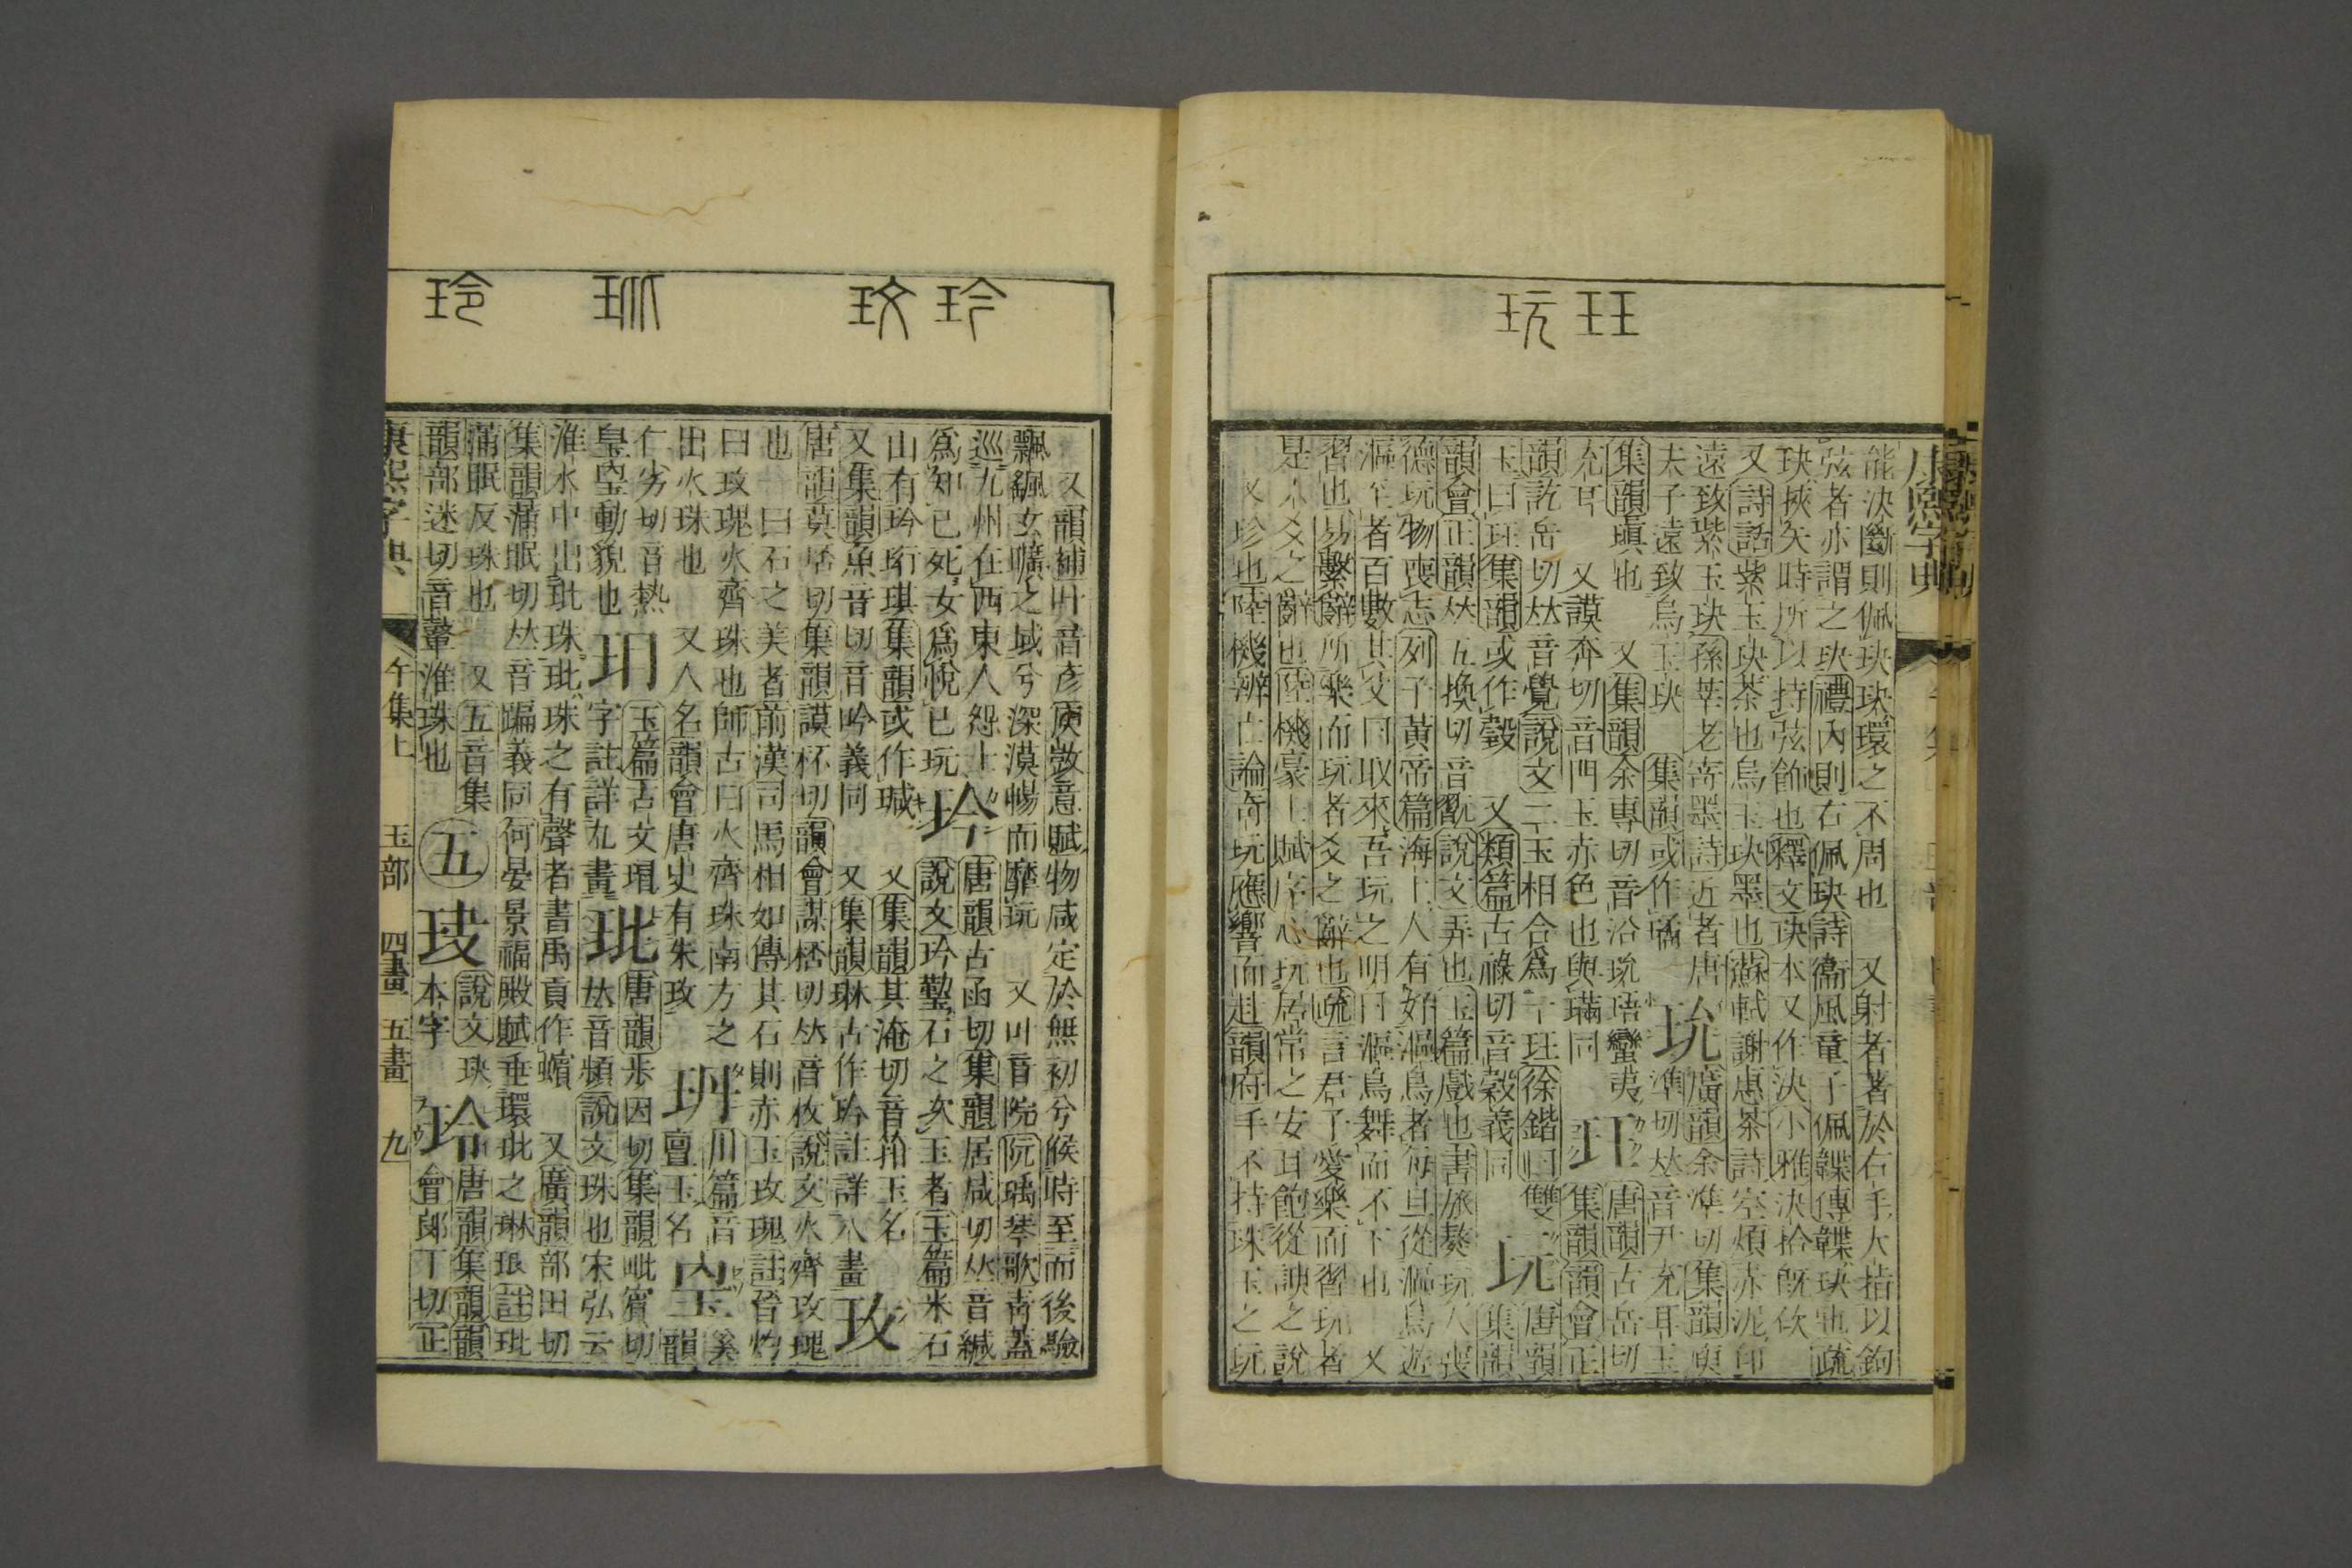 玨
玩
能決斷則佩玦玦環之不周也 又射者著於右手大指以鉤
弦者亦謂之玦禮內則右佩玦詩衞風童子佩韘傳韘玦也疏
玦挾矢時所以持弦飾也釋文玦本又作決小雅決拾旣佽
又詩話紫玉玦茶也烏玉玦墨也蘇軾謝惠茶詩空煩赤泥印
遠致紫玉玦孫莘老寄墨詩近者唐
夫子遠致烏玉玦 集韻或作璚
玧
廣韻余準切集韻庾
準切𠀤音尹充耳玉
集韻瑱也 又集韻余專切音沿玧珸蠻夷
充耳 又謨奔切音門玉赤色也與璊同
玨
唐韻古岳切
集韻韻會正
韻訖岳切𠀤音覺說文二玉相合爲一玨徐鍇曰雙
玉曰玨集韻或作瑴 又類篇古祿切音穀義同
玩
唐韻
集韻
韻會正韻𠀤五換切音翫說文弄也玉篇戲也書旅獒玩人喪
德玩物喪志列子黃帝篇海上人有好漚鳥者每旦從漚鳥遊
漚至者百數其父曰取來吾玩之明日漚鳥舞而不下也 又
習也易繫辭所樂而玩者爻之辭也疏言君子愛樂而習玩者
是六爻之辭也陸機豪士賦序心玩居常之安耳飽從諛之說
又珍也陸機辨亡論奇玩應響而赴韻府手不持珠玉之玩
玪
玫
玭
玲
又韻補叶音彥庾敳意賦物咸定於無初兮候時至而後驗
飄颻玄曠之域兮深漠暢而靡玩 又叶音院阮瑀琴歌靑蓋
巡九州在西東人怨士
爲知己死女爲悅己玩
玪
唐韻古函切集韻居咸切𠀤音緘
說文玪䃪石之次玉者玉篇米石
山有玪玗琪集韻或作瑊 又集韻其淹切音箝玉名
又集韻魚音切音吟義同 又集韻琳古作玪註詳八畫
玫
唐韻莫桮切集韻謨杯切韻會謀桮切𠀤音枚說文火齊玫瑰
也一曰石之美者前漢司馬相如傳其石則赤玉玫瑰註晉灼
曰玫瑰火齊珠也師古曰火齊珠南方之
出火珠也 又人名韻會唐史有朱玫
玬
川篇音
亶玉名
奚
韻
仁劣切音熱
皇 動貌也
玥
玉篇古文瑁
字註詳九畫
玭
唐韻步因切集韻毗賓切
𠀤音頻說文珠也宋弘云
淮水中出玭珠玭珠之有聲者書禹貢作蠙 又廣韻部田切
集韻蒲眠切𠀤音蹁義同何晏景福殿賦垂環玭之琳琅註玭
蒲眠反珠也 又五音集
韻部迷切音鼙淮珠也
五
說文玦
本字
玲
唐韻集韻韻
會郎丁切正
康熙字典 午集上 玉部 四畫 五畫 九